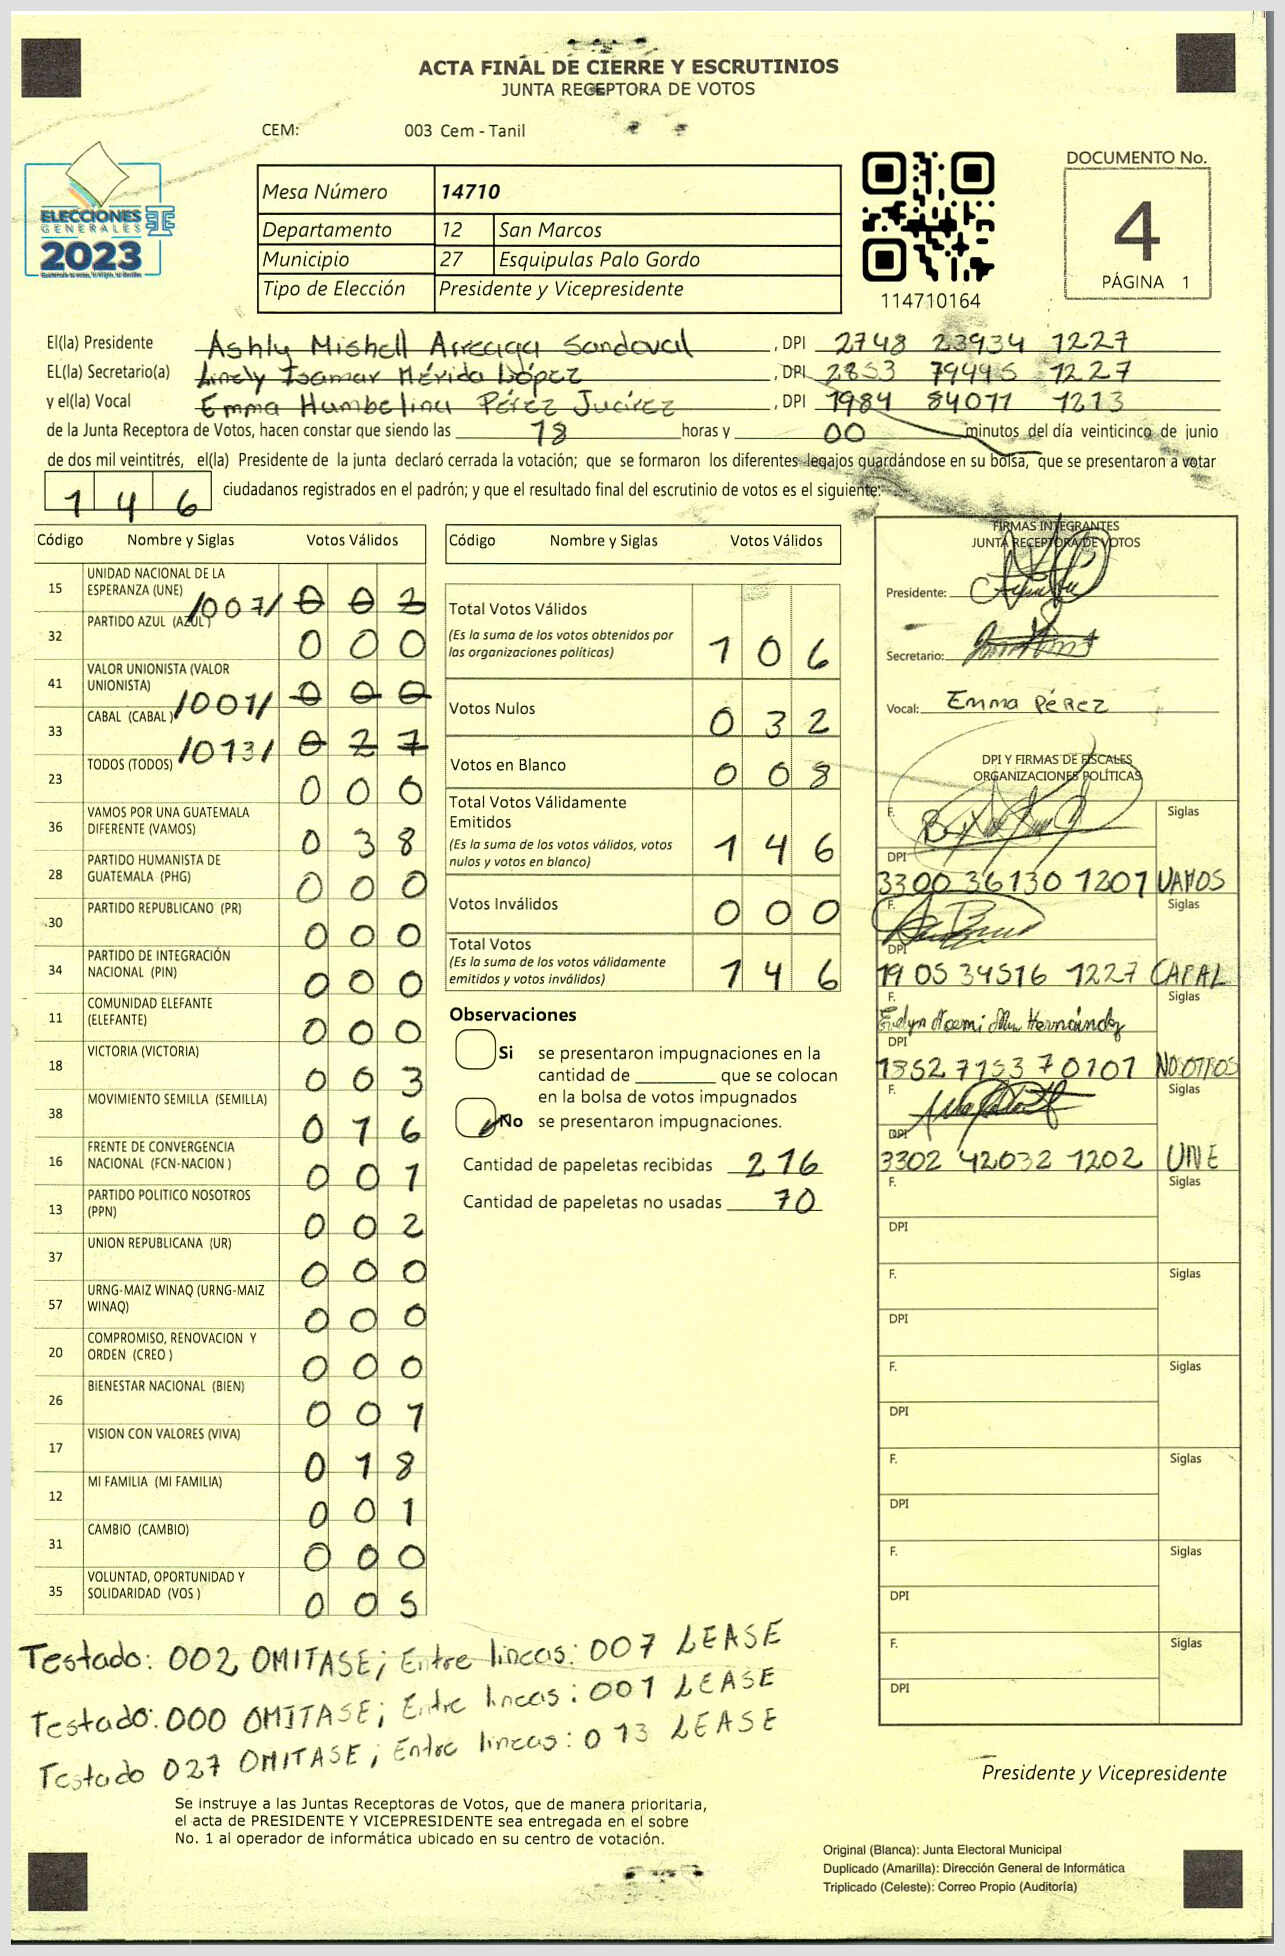 ACTA FINAL DE CIERRE Y ESCRUTINIOS
JUNTA RECEPTORA DE VOTOS
CEM: 003 Cem - Tanil
ELECCIONES
GENERALES
2023
Mesa Número 14710
Departamento 12 San Marcos
Municipio 27 Esquipulas Palo Gordo
Tipo de Elección Presidente y Vicepresidente
114710164
DOCUMENTO No.
4
PÁGINA 1
El(la) Presidente Ashly Mishell Arreaga Sandoval, DPI 2748 23934 1227
EL(la) Secretario(a) Lindy Isamar Mérida López, DPI 2853 79445 1227
y el(la) Vocal Emma Humbelina Pérez Juárez, DPI 1984 84071 1213
de la Junta Receptora de Votos, hacen constar que siendo las 18 horas y 00 minutos del día veinticinco de junio
de dos mil veintitrés, el(la) Presidente de la junta declaró cerrada la votación; que se formaron los diferentes legajos guardándose en su bolsa, que se presentaron a votar
146 ciudadanos registrados en el padrón; y que el resultado final del escrutinio de votos es el siguiente:
Código Nombre y Siglas Votos Válidos
15 UNIDAD NACIONAL DE LA ESPERANZA (UNE) /007/ 002
32 PARTIDO AZUL (AZUL) 000
41 VALOR UNIONISTA (VALOR UNIONISTA) /001/ 000
33 CABAL (CABAL) /013/ 027
23 TODOS (TODOS) 000
36 VAMOS POR UNA GUATEMALA DIFERENTE (VAMOS) 038
28 PARTIDO HUMANISTA DE GUATEMALA (PHG) 000
30 PARTIDO REPUBLICANO (PR) 000
34 PARTIDO DE INTEGRACIÓN NACIONAL (PIN) 000
11 COMUNIDAD ELEFANTE (ELEFANTE) 000
18 VICTORIA (VICTORIA) 003
38 MOVIMIENTO SEMILLA (SEMILLA) 016
16 FRENTE DE CONVERGENCIA NACIONAL (FCN-NACION ) 001
13 PARTIDO POLITICO NOSOTROS (PPN) 002
37 UNION REPUBLICANA (UR) 000
57 URNG-MAIZ WINAQ (URNG-MAIZ WINAQ) 000
20 COMPROMISO, RENOVACION Y ORDEN (CREO ) 000
26 BIENESTAR NACIONAL (BIEN) 001
17 VISION CON VALORES (VIVA) 018
12 MI FAMILIA (MI FAMILIA) 001
31 CAMBIO (CAMBIO) 000
35 VOLUNTAD, OPORTUNIDAD Y SOLIDARIDAD (VOS ) 005
Código Nombre y Siglas Votos Válidos
Total Votos Válidos 106
(Es la suma de los votos obtenidos por
las organizaciones políticas)
Votos Nulos 032
Votos en Blanco 008
Total Votos Válidamente
Emitidos 146
(Es la suma de los votos válidos, votos
nulos y votos en blanco)
Votos Inválidos 000
Total Votos 146
(Es la suma de los votos válidamente
emitidos y votos inválidos)
Observaciones
Si se presentaron impugnaciones en la
cantidad de ________ que se colocan
en la bolsa de votos impugnados
No se presentaron impugnaciones.
Cantidad de papeletas recibidas 216
Cantidad de papeletas no usadas 70
FIRMAS INTEGRANTES
JUNTA RECEPTORA DE VOTOS
Presidente:
Secretario:
Vocal: Emma Pérez
DPI Y FIRMAS DE FISCALES
ORGANIZACIONES POLÍTICAS
F. Siglas
DPI
3300 36130 1201 VAMOS
F. Siglas
DPI
1905 34516 1227 CAPAL
F. Siglas
Evelyn Noemi Hernández
DPI
1852 7153 70101 NOSOTROS
F. Siglas
DPI
3302 42032 1202 UNE
F. Siglas
DPI
F. Siglas
DPI
F. Siglas
DPI
F. Siglas
DPI
F. Siglas
DPI
F. Siglas
DPI
Testado: 002 OMITASE; Entre lineas: 007 LEASE
Testado: 000 OMITASE; Entre lineas: 001 LEASE
Testado 027 OMITASE; Entre lineas: 013 LEASE
Presidente y Vicepresidente
Se instruye a las Juntas Receptoras de Votos, que de manera prioritaria,
el acta de PRESIDENTE Y VICEPRESIDENTE sea entregada en el sobre
No. 1 al operador de informática ubicado en su centro de votación.
Original (Blanca): Junta Electoral Municipal
Duplicado (Amarilla): Dirección General de Informática
Triplicado (Celeste): Correo Propio (Auditoría)